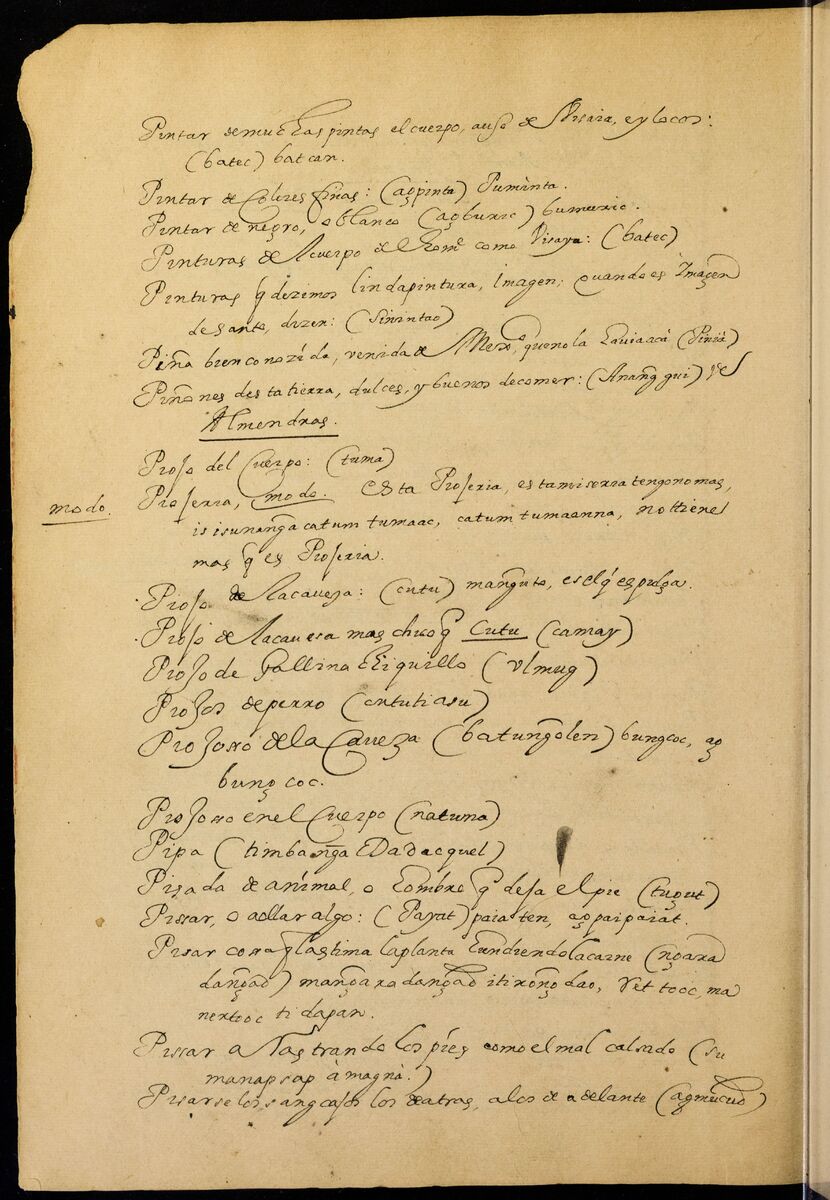 Pintar de muchas pintas el cuerpo, a uso de Visaia, eylocos:
(batec) batcan.
Pintar de Colores finas: (agpinta) Puminta.
Pintar de negro, o blanco (agburic) bumuric.
Pinturas de l cuerpo del homᵉ como Visaya: (batec)
Pinturas q̃ dezimos linda pintura, Imagen; quando es Imagen
de santo, dizen: (Sinintao)
Piña bien conozida, venida de Mexᵒ, que no la haviaacà (Pinià)
Piñones desta tierra, dulces, y buenos de comer: (Anang̃gui) vel
Almendras.
Piojo del Cuerpo: (tuma)
modo.
Piojeria, modo. esta Piojeria, esta miseria tengo no mas,
isisunang̃a catum tumaac, catum tumaanna, no ttienes
mas q̃ es Piojeria.
Piojo de la caveza: (cutu) mang̃uto, es el q̃ espulga.
Piojo de la cavesa mas chico q̃ Cutu (camay)
Piojo de Gallina chiquillo (ulmug)
Piojos de perro (cututi asu)
Piojoso de la Caveza (batung̃olen) bungcoc, ag
bungcoc.
Piojoso en el Cuerpo (natuma)
Pipa (timbang̃a Dadacquel)
Pisada de animal, o hombre q̃ dexa el pie (tugut)
Pissar, o aollar algo: (Payat) paiaten, agpaipaiat.
Pisar cosa q̃ lastima la planta hundiendo la carne (ng̃ara
dang̃ad) mang̃aradang̃ad itirong̃dao, Vettooc, ma
nettooc ti dapan.
Pissar arrastrando los pies como el mal calsado (su
manapsap à magnà.)
Pisarse los sancajos los de atras, a los de adelante (agmucud)